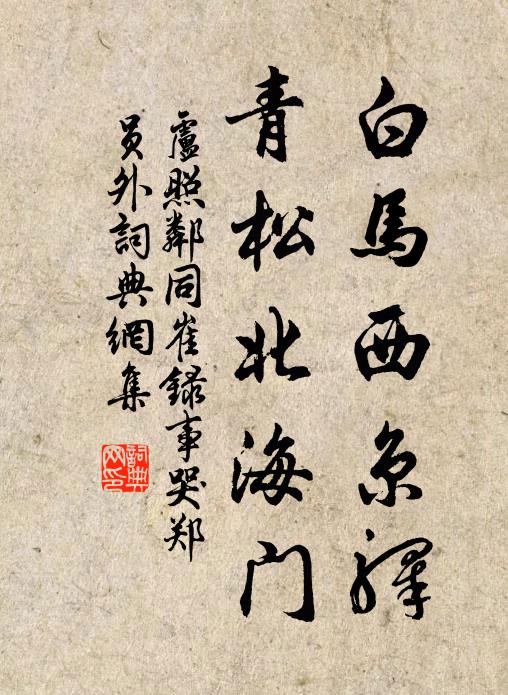 白馬西京驛
青松北海门
盧照鄰同崔録事哭郑
員外詞典網集
詞典网印